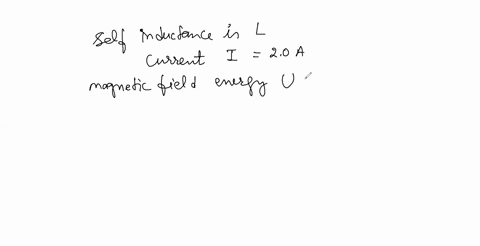 self inductance is L
current I = 2.0 A
magnetic field energy U